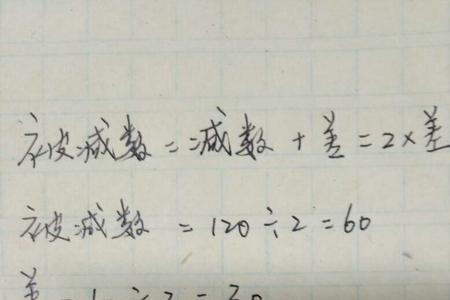 被减数=减数+差=2×差
被减数=120÷2=60
差